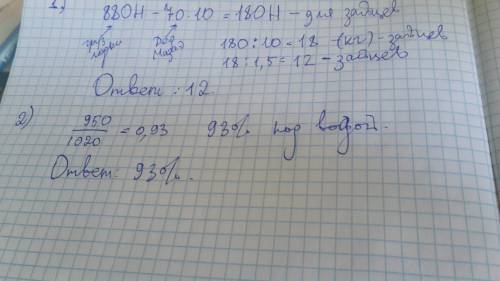 1)
880Н - 70·10 = 180Н - для зайцев
груз. лодки
Дед Мазай
180 : 10 = 18 (кг) - зайцев
18 : 1,5 = 12 - зайцев
Ответ: 12
2)
950/1020 = 0,93 93% под водой.
Ответ: 93%.